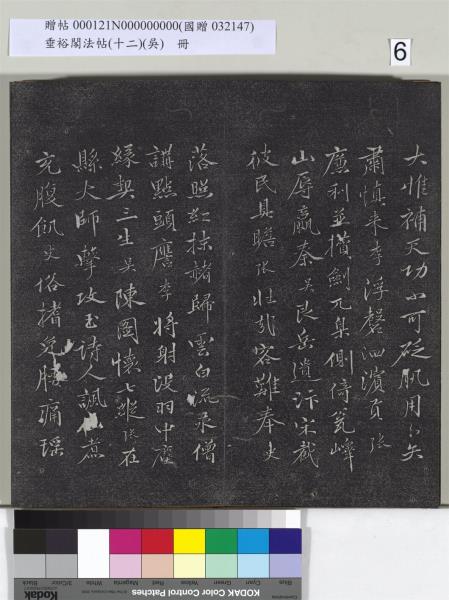 贈帖 000121N000000000(國贈 032147)
垂裕閣法帖(十二)(吳) 冊
6
大惟補天功小可砭肌用小矢
肅慎来李浮磬泗濱貢張
廉利並攢劍兀臬側倚瓮峰
山辱嬴秦吳艮岳遺汴宋截
彼民具瞻張壯哉客難奉史
落照紅抹赭歸雲白流汞僧
講點頭應李將射沒羽中塵
緣契三生吳陳圖懷七縱張在
縣大師擊攻玉詩人諷煮
充腹飢史俗揩免肘痛瑶
Blue Cyan Green Yellow Red Magenta White 3/Color Black
KODAK Color Control Patches